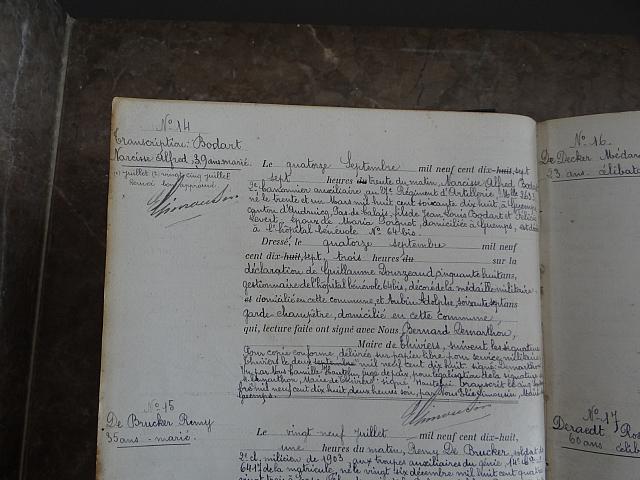 N° 14
Transcription: Bodart
Narcisse Alfred, 39 ans marié.
vingt cinq juillet
Le quatorze Septembre mil neuf cent dix-huit, sept
sept heures du trente du matin, Narcisse Alfred Bodart
2e canonnier auxiliaire au 27e Régiment d'Artillerie Mlle 3633
né le trente et un Mars mil huit cent soixante dix huit à Guemps
canton d'Audruicq, Pas-de-Calais, fils de Jean Louis Bodart et Félicie
époux de Maria domicilié à Guemps, est décédé
à l'hôpital bénévole N° 64 bis.
Dressé, le quatorze septembre mil neuf
cent dix-huit, sept, trois heures du sur la
déclaration de Guillaume cinquante huit ans,
gestionnaire de l'hôpital bénévole 64 bis, décoré de la médaille militaire
et domicilié en cette commune, et Aubin Adolphe, soixante sept ans
garde-champêtre, domicilié en cette commune,
qui, lecture faite ont signé avec Nous, Bernard Demarthon,
Maire de Thiviers, suivent les signatures
Pour copie conforme délivrée sur papier libre pour service militaire
Thiviers le deux septembre mil neuf cent dix huit. signé Demarthon
Vu par Nous juge de paix, pour légalisation de la signature
Demarthon, Maire de Thiviers signé transcrit le cinq
mil neuf cent dix huit deux heures soir, par Nous Maire
Guemps.
N° 15
De Brucker Remy
35 ans - marié.
Le vingt neuf juillet mil neuf cent dix-huit,
une heures du matin, Remy De Brucker, soldat de
2e cl. milicien de 1903 aux troupes auxiliaires du génie, 14e
6417 de la matricule, né le vingt six décembre mil huit cent quatre
N° 16
De Decker Médard
23 ans. célibat
N° 17
Deraedt
60 ans célib